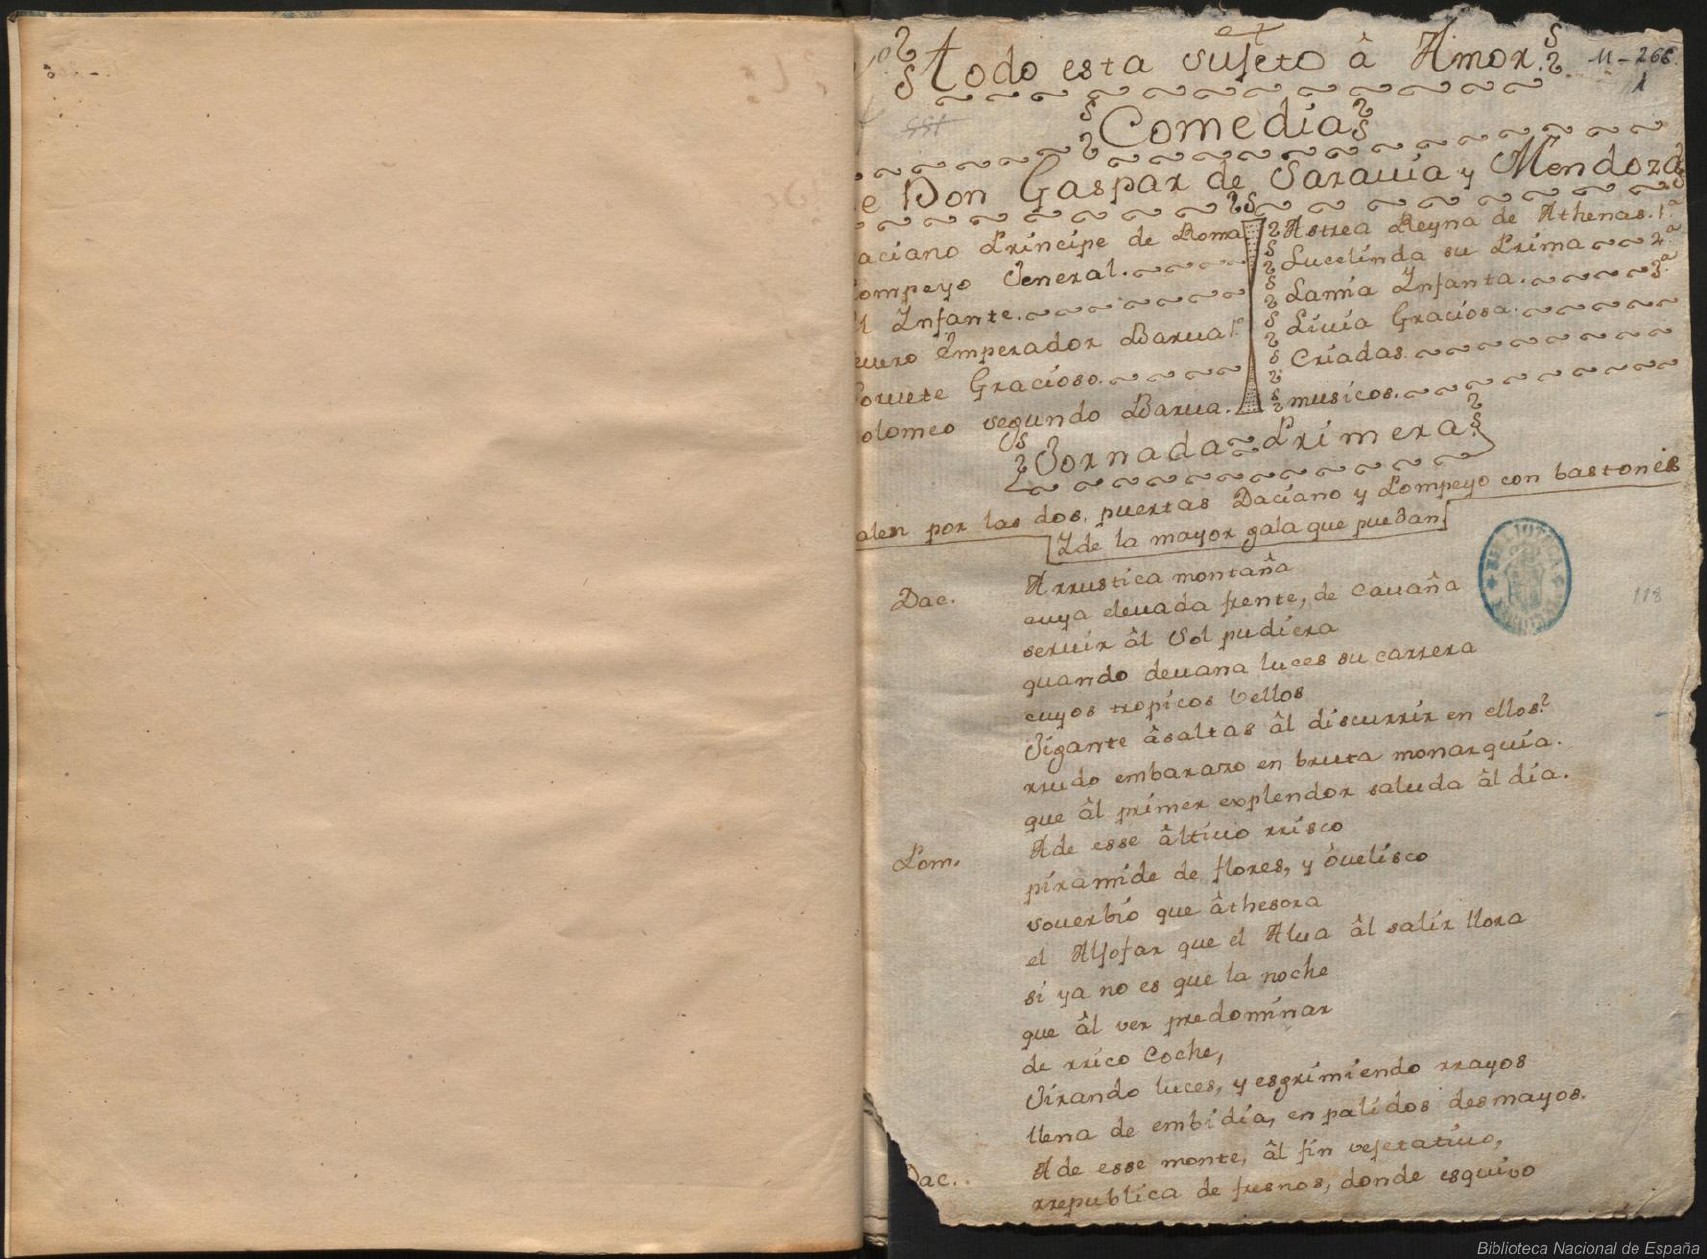 Todo esta sujeto â Amor.
M-266
1
Comedia
e Don Gaspar de Sarauia y Mendoza
aciano Principe de Roma
ompeyo General.
l Infante.
euro Imperador Barua 1º
oruete Gracioso.
olomeo segundo Barua.
Astrea Reyna de Athenas. 1.ª
Lucelinda su Prima 2.ª
Lamia Infanta. 3.ª
Liuia Graciosa.
Criadas.
musicos.
Jornada Primera
alen por las dos puertas Daciano y Pompeyo con bastones
I de la mayor gala que puedan
Dac. A rrustica montaña
cuya eleuada frente, de cauaña
seruir âl Sol pudiera
quando deuana luces su carrera
cuyos tropicos bellos
Jigante âsaltas âl discurrir en ellos?
rrudo embarazo en bruta monarquia.
que âl primer explendor saluda âl dia.
Pom. A de esse âltiuo rrisco
piramide de flores, y ôuelisco
souerbio que âthesora
el Aljofar que el Alua âl salir llora
si ya no es que la noche
que âl ver predominar
de rrico Coche,
Jirando luces, y esgrimiendo rrayos
llena de embidia, en palidos desmayos.
Dac. A de esse monte, âl fin vejetatiuo,
rrepublica de fresnos, donde esquivo
118
BIBLIOTECA
Biblioteca Nacional de España